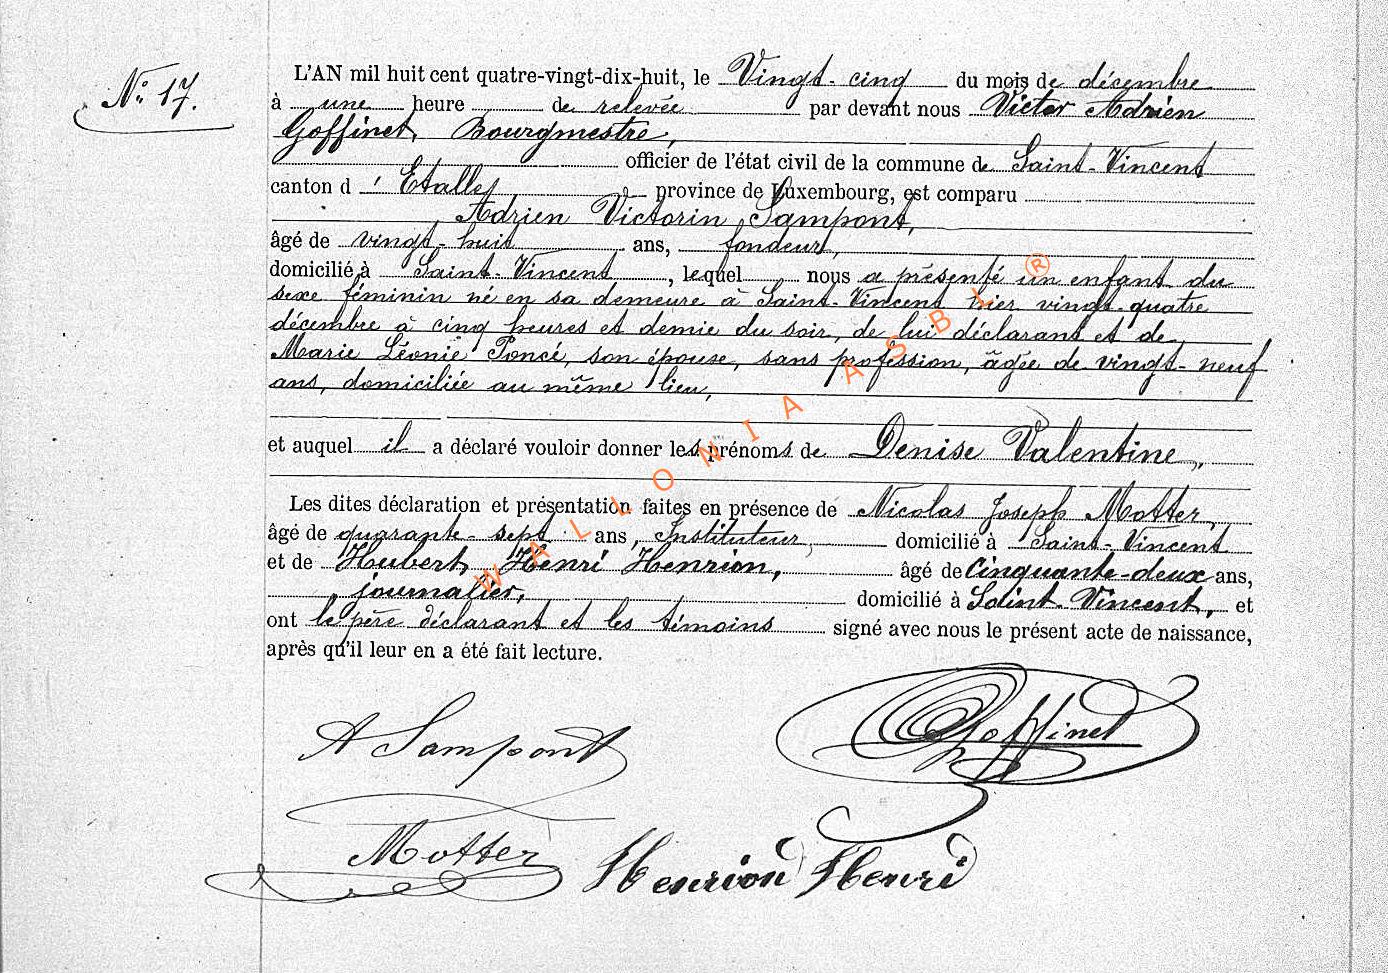 N° 17.
L'AN mil huit cent quatre-vingt-dix-huit, le Vingt-cinq du mois de décembre
à une heure de relevée par devant nous Victor Adrien
Goffinet, Bourgmestre,
officier de l'état civil de la commune de Saint-Vincent
canton d'Etalle, province de Luxembourg, est comparu
Adrien Victorin Lampont,
âgé de vingt-huit ans, fondeur,
domicilié à Saint-Vincent, lequel nous a présenté un enfant du
sexe féminin né en sa demeure à Saint-Vincent hier vingt-quatre
décembre à cinq heures et demie du soir, de lui déclarant et de
Marie Léonie Poncé, son épouse, sans profession, âgée de vingt-neuf
ans, domiciliée au même lieu,
et auquel il a déclaré vouloir donner les prénoms de Denise Valentine,
Les dites déclaration et présentation faites en présence de Nicolas Joseph Motter,
âgé de quarante-sept ans, Instituteur, domicilié à Saint-Vincent
et de Hubert Henri Henrion, âgé de Cinquante-deux ans,
journalier, domicilié à Saint-Vincent, et
ont le père déclarant et les témoins signé avec nous le présent acte de naissance,
après qu'il leur en a été fait lecture.
A Lampont
Goffinet
Motter
Henrion Henri
WALLONIA ASBL ®